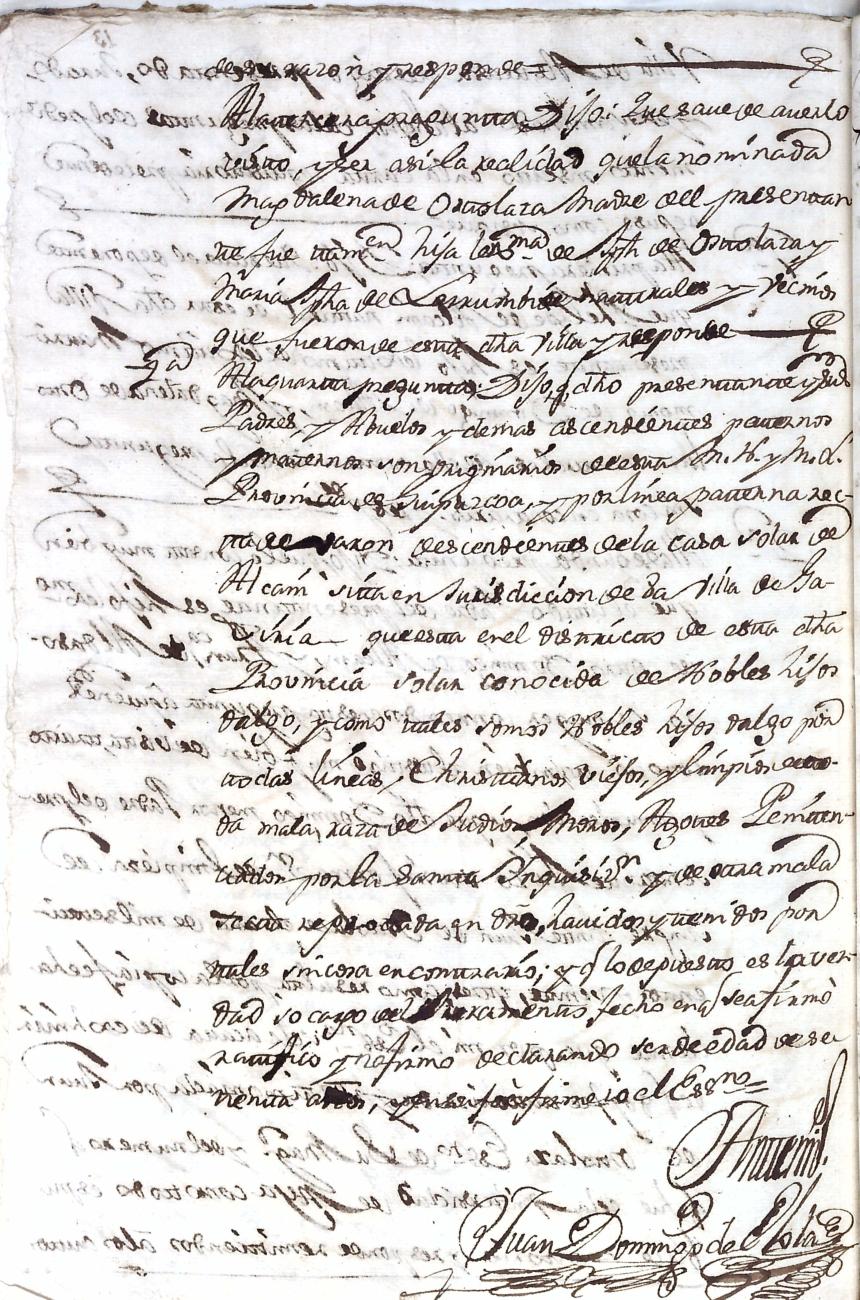 de su razon y responde =
A la tercera pregunta Dijo: Que save de averlo
visto, y ser asi la realidad que la nominada
Magdalena de Ostolaza Madre del presentan
te fue tam.en hija lexma de Jph de Ostolaza y
Maria Jpha de Lerrumbide naturales y Vecinos
que fueron de esta dha Villa y responde
4a A la quarta pregunta: Dijo q dho presentante y sus
Padres, y Abuelos y demas ascendientes paternos
y maternos son originarios de esta M. N. y M. L.
Provincia de Guipuzcoa, y por linea paterna rec-
ta de varon descendientes de la casa solar de
Alcain sitta en Jurisdiccion de la Villa de Ga-
viria que esta en el districto de esta dha
Provincia solar conocida de Nobles hijos
dalgo, y como tales somos Nobles hijos dalgo por
todas lineas, Christianos viejos, y limpios de to-
da mala raza de Judios Moros, Agotes Peniten-
ciados por la Santa Inquisizn y de otra mala
secta reprobada en dro, havidos y tenidos por
tales sin cosa en contrario; y q lo depuesto es la ver-
dad so cargo del Juramento fecho en q se afirmó
ratificó y no firmó declarando ser de edad de se
tenta años, y en su fee firme io el Essno =
Antemi
Juan Domingo de Olola